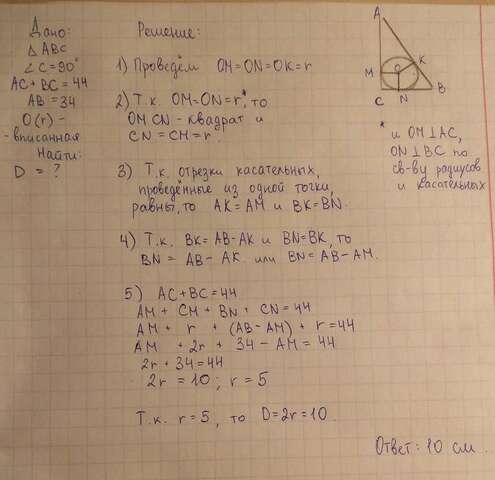 Дано:
△ ABC
∠C = 90°
AC + BC = 44
AB = 34
O(r) -
- вписанная
Найти:
D = ?
Решение:
1) Проведём OM=ON=OK=r
2) Т.к. OM=ON=r*, то
OMCN - квадрат и
CN = CM = r.
3) Т.к. отрезки касательных,
проведённые из одной точки,
равны, то AK=AM и BK=BN.
4) Т.к. BK=AB-AK и BN=BK, то
BN = AB-AK или BN=AB-AM.
5) AC+BC=44
AM + CM + BN + CN = 44
AM + r + (AB-AM) + r = 44
AM + 2r + 34 - AM = 44
2r + 34 = 44
2r = 10; r = 5
Т.к. r=5, то D=2r=10.
Ответ: 10 см.
A
M
O
K
C
N
B
* и OM⊥AC,
ON⊥BC по
св-ву радиусов
и касательных